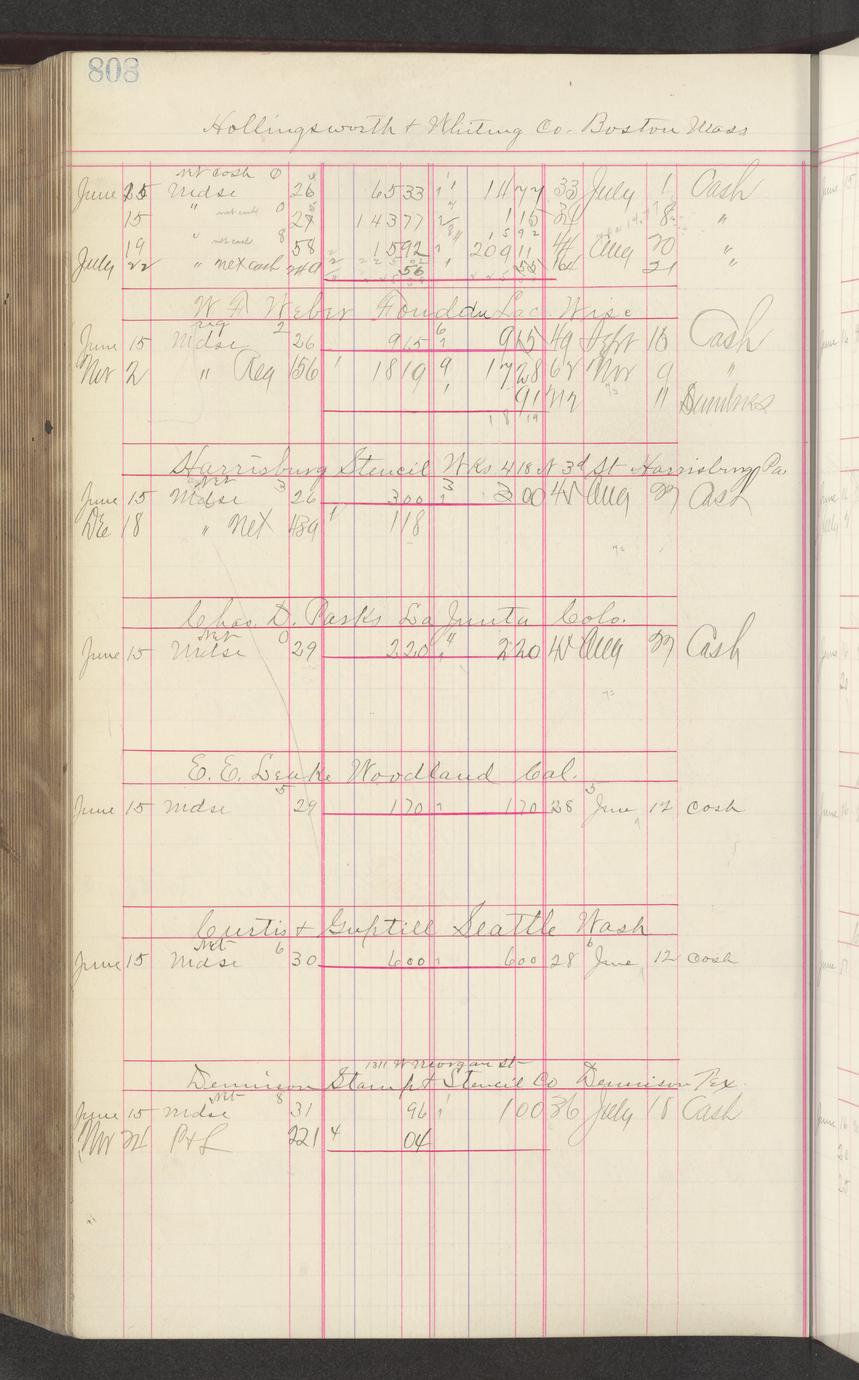 808
Hollingsworth & Whiting Co. Boston Mass
net cash 0
June 15 Mdse 26 6533 1477 33 July 1 Cash
15 " net cash 0 27 14377 115 8 "
19 " net cash 8 58 1592 20911 44 Aug 20 "
July 22 " net cash 240 56 55 64 21 "
W. A. Weber Fond du Lac Wisc
June 15 Mdse 2 26 915 915 49 Sept 15 Cash
Nov 2 " Reg 156 1819 1728 62 Nov 9 "
91 212 " Sundries
1819
Harrisburg Stencil Wks 418 N 3d St Harrisburg Pa
Net 3
June 15 Mdse 26 300 300 45 Aug 27 Cash
Dec 18 " Net 189 118
Chas. D. Parks La Junta Colo.
Net 0
June 15 Mdse 29 220 220 45 Aug 27 Cash
E. E. Leake Woodland Cal.
5 5
June 15 Mdse 29 170 170 28 June 12 Cash
Curtis & Guptill Seattle Wash
Net 6 6
June 15 Mdse 30 600 600 28 June 12 Cash
1311 W Morgan St
Dennison Stamp & Stencil Co Dennison Tex.
Net 8
June 15 Mdse 31 96 100 36 July 18 Cash
Nov 21 P & L 221 4 04